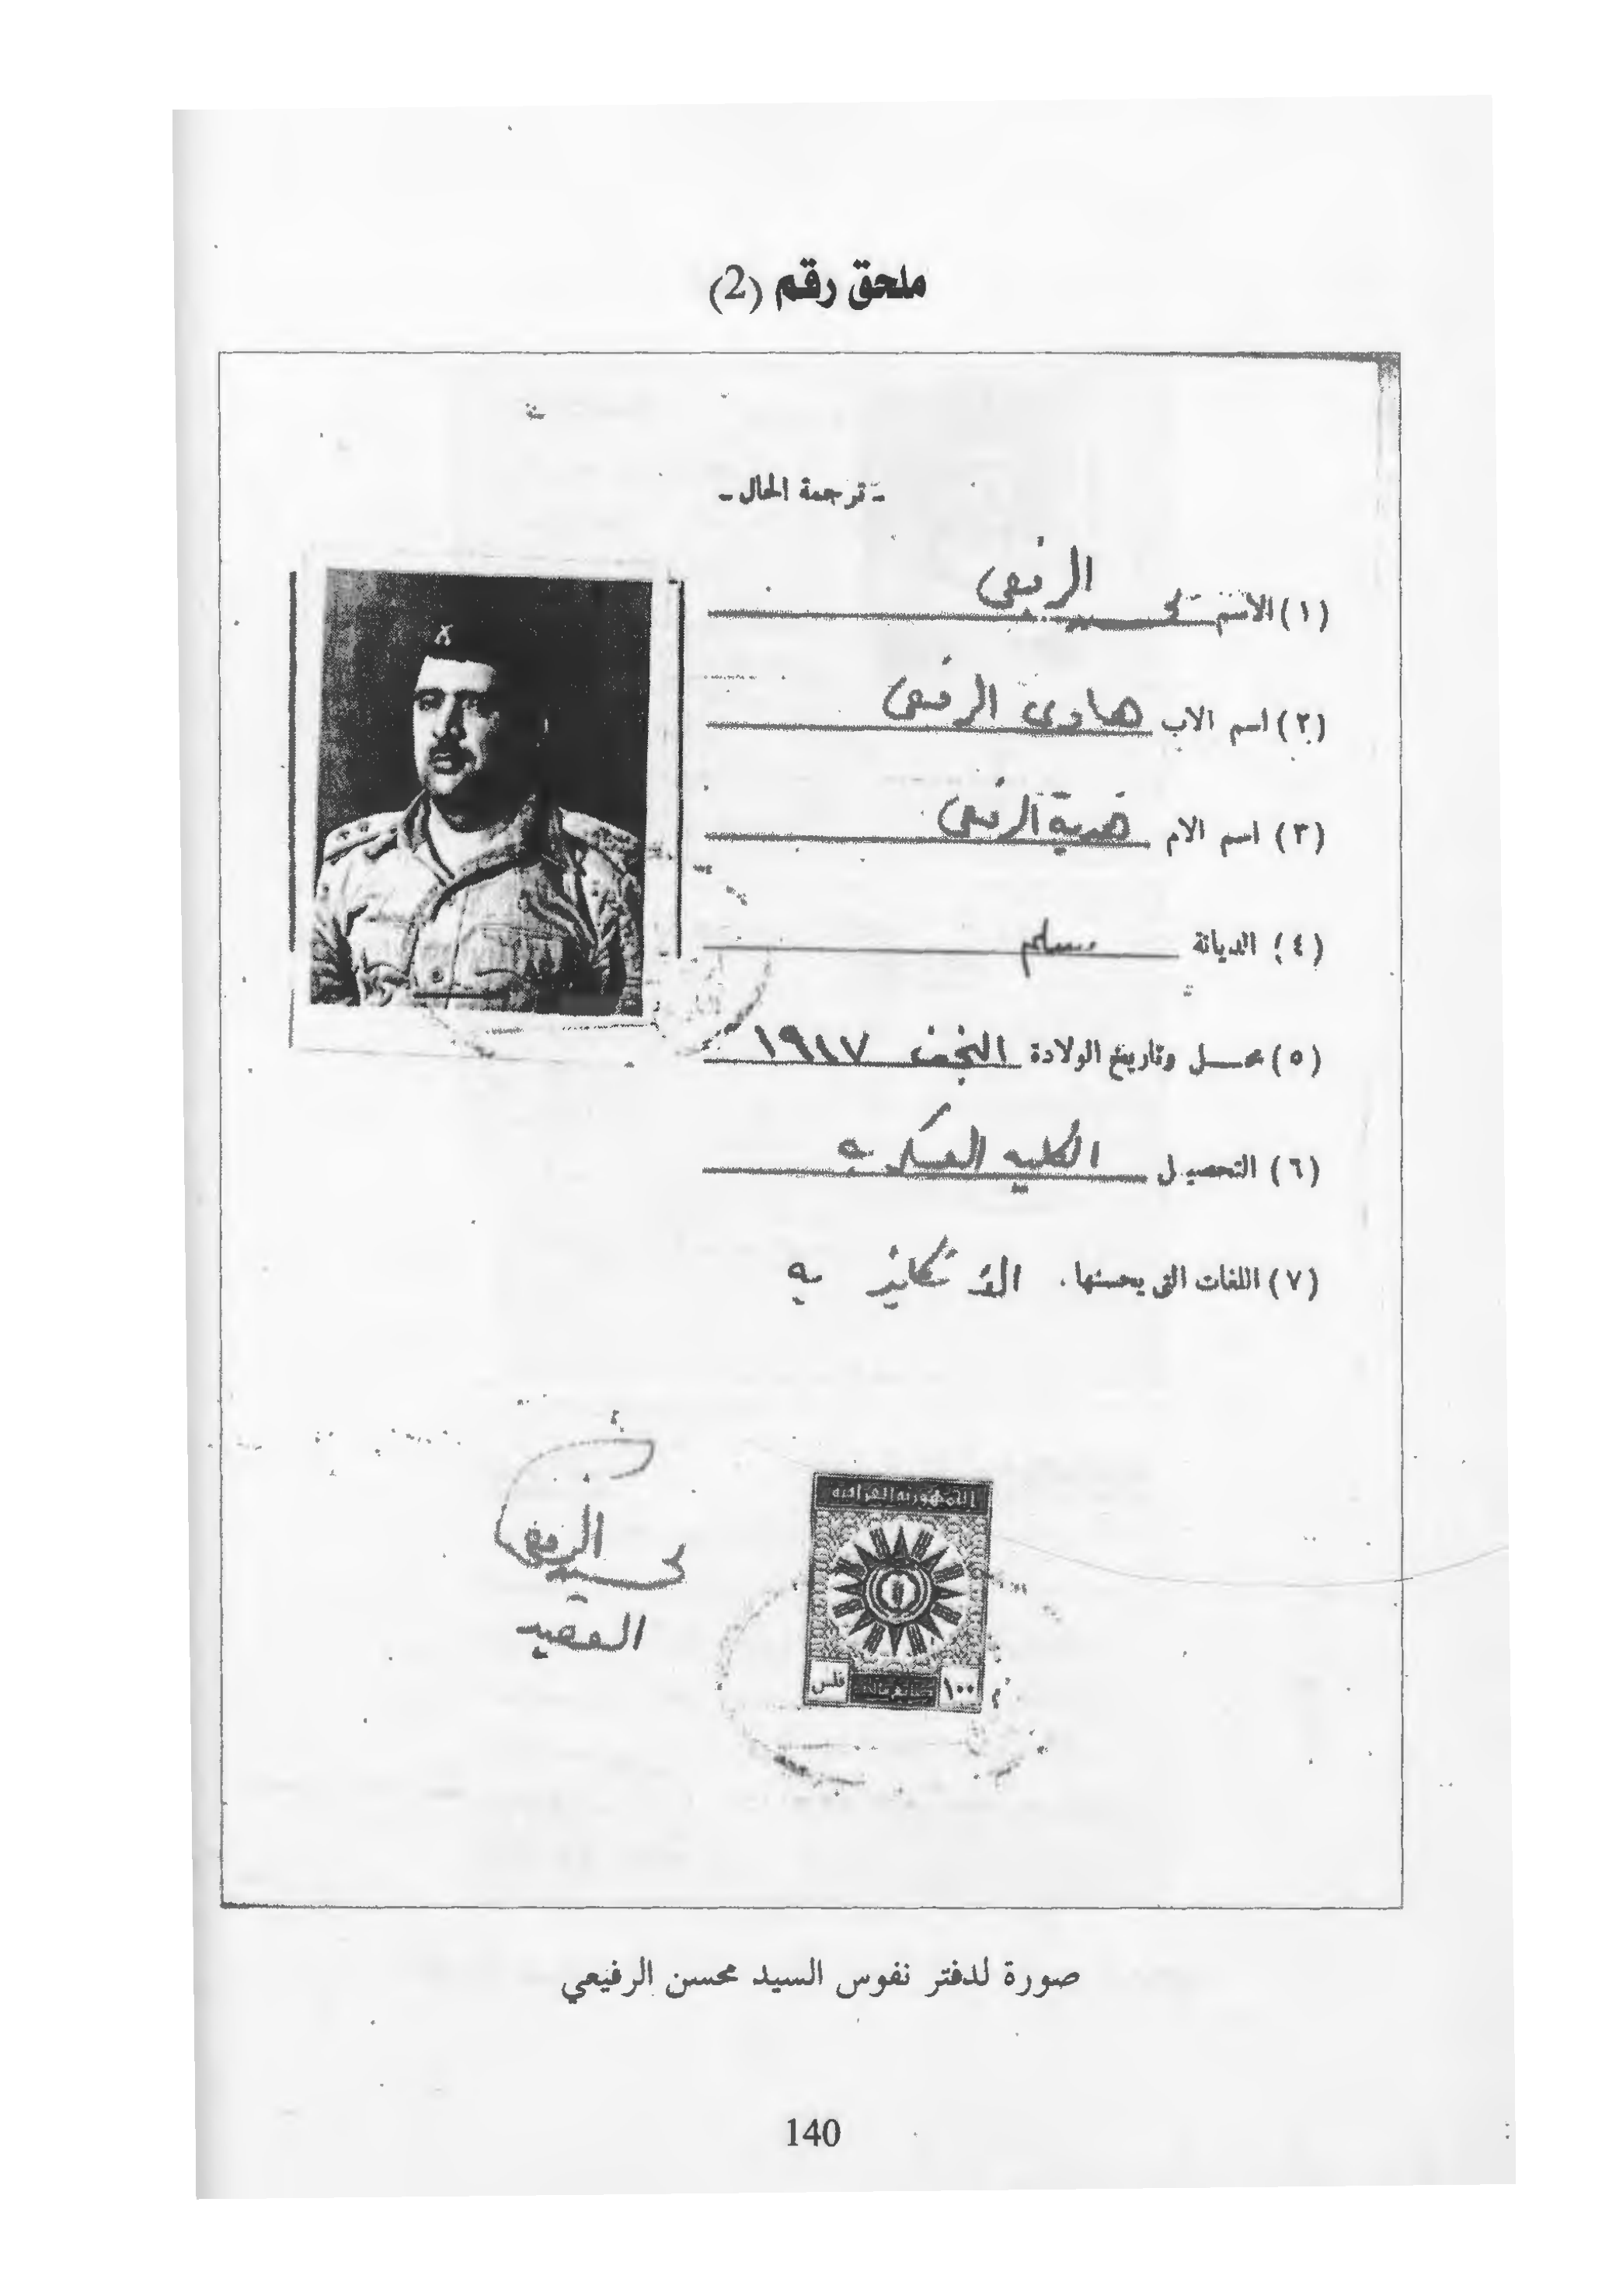 ملحق رقم (2)
- ترجمة الحال -
(١) الاسم محسن الرفيعي
(٢) اسم الاب هادي الرفيعي
(٣) اسم الام الرفيعي
(٤) الديانة مسلم
(٥) محل وتاريخ الولادة النجف ١٩١٧
(٦) التحصيل الكليه العسكريه
(٧) اللغات التي يحسنها. الانكليزيه
محسن الرفيعي
العقيد
الجمهورية العراقية
١٠٠ فلس
صورة لدفتر نفوس السيد محسن الرفيعي
140